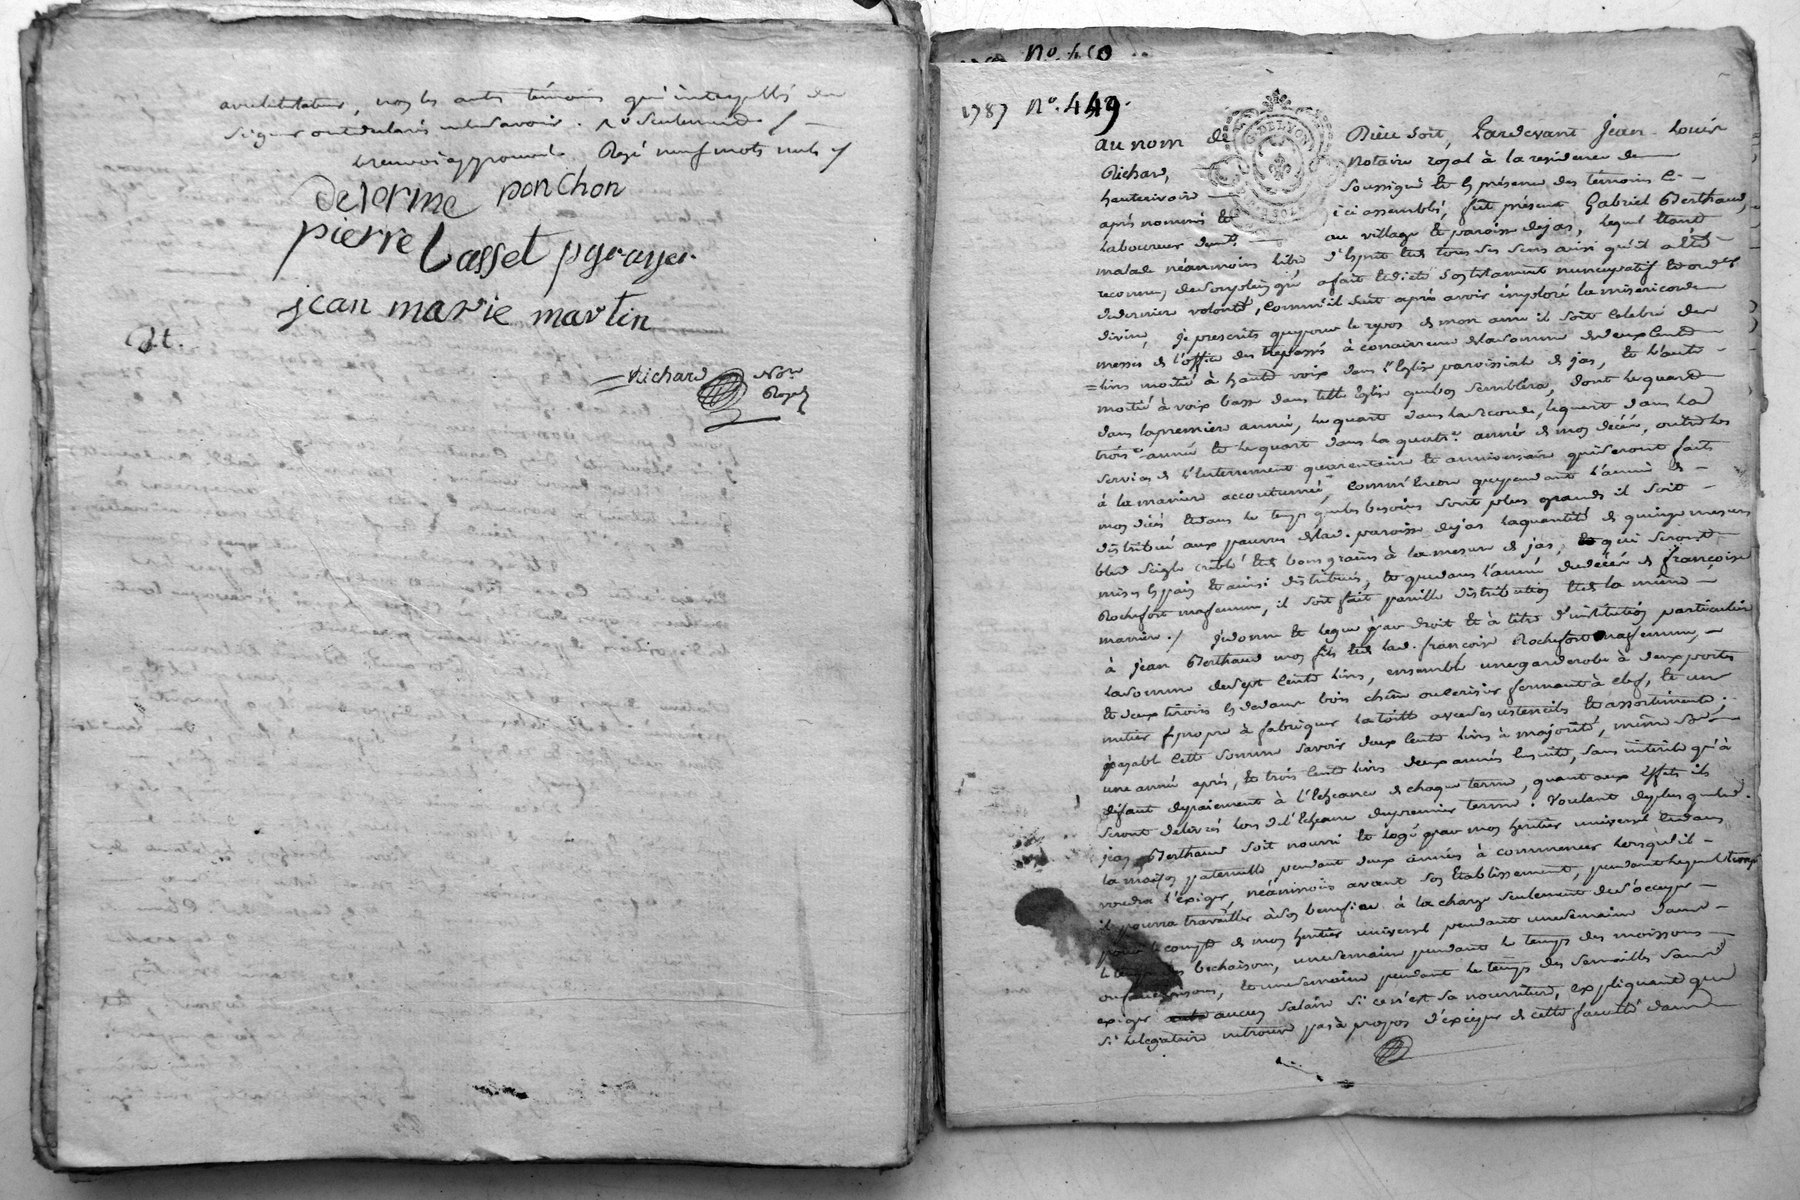 avec le testateur, non les autres témoins qui interpellés de
signer ont déclaré ne le savoir. 
Rayé neuf mots nuls
delorme ponchon
pierre Lasset pgrayer
jean marie martin
Dt.
Richard Nore
Royal
N°. 450
1787 N°. 449.
au nom de Dieu soit, Pardevant Jean Louis
Richard, Notaire royal à la residence de
hauterivoire soussigné et en présence des temoins ci-
après nommés et ici assemblés, fut présent Gabriel Berthaud,
laboureur demt. au village et paroisse de jas, lequel étant
malade néanmoins libre d'esprit et de tous ses sens ainsi qu'il a été
reconnu, de son plein gré a fait et dicté son testament nuncupatif et ord.re
de derniere volonté, comme il suit après avoir imploré la misericorde
divine, je prescrits que pour le repos de mon ame il soit celebré des
messes de l'office des trepassés à concurrence de la somme de deux cents
livres moitié à haute voix dans l'Eglise paroissiale de jas, et l'autre
moitié à voix basse dans telle Eglise que bon semblera, dont le quart
dans la premiere année, le quart dans la seconde, le quart dans la
trois.e année et le quart dans la quatr.e année de mon décéé, outre les
services de l'enterrement quarantaine et anniversaire qui seront faits
à la maniere accoutumée, comm'encore que pendant l'année de
mon décéé et dans le temps que les besoins sont plus grands il soit
distribué aux pauvres de lad. paroisse de jas la quantité de quinze mesures
bled seigle criblé et de bons grains à la mesure de jas, qui seront
mises en pain et ainsi distribués, et que dans l'année du décéé de françoise
Rochefort ma femme, il soit fait pareille distribution et de la même
maniere ./ je donne et legue par droit et à titre d'institution particuliere
à jean Berthaud mon fils et de lad. françoise Rochefort ma femme,
la somme de sept cents livres, ensemble une garderobe à deux portes
et deux tiroirs en dedans bois chêne ou cerisier fermant à clef, et un
metier propre à fabriquer la toile avec des ustencils et assortiments;
payable cette somme savoir deux cents livres à majorité, même somme
une année après, et trois cents livres deux années ensuite, sans intérêts qu'à
défaut de paiement à l'Echeance de chaque terme, quant aux Effets ils
seront délivrés lors de l'Echeance du premier terme: Voulant de plus que led.
jean Berthaud soit nourri et logé par mon heritier universel et dans
la maison paternelle pendant deux années à commencer lorsqu'il
voudra l'exiger, néanmoins avant son Etablissement, pendant lequel temps
il pourra travailler à son benefice à la charge seulement de s'occuper
pour le compte de mon heritier universel pendant une semaine dans
le temps des bechaisons, une semaine pendant le temps des moissons
ou fauchaisons, et une semaine pendant le temps des semailles sans
exiger aucun salaire si ce n'est sa nourriture, expliquant que
si le legataire ne trouve pas à propos d'exciper de cette faculté dans